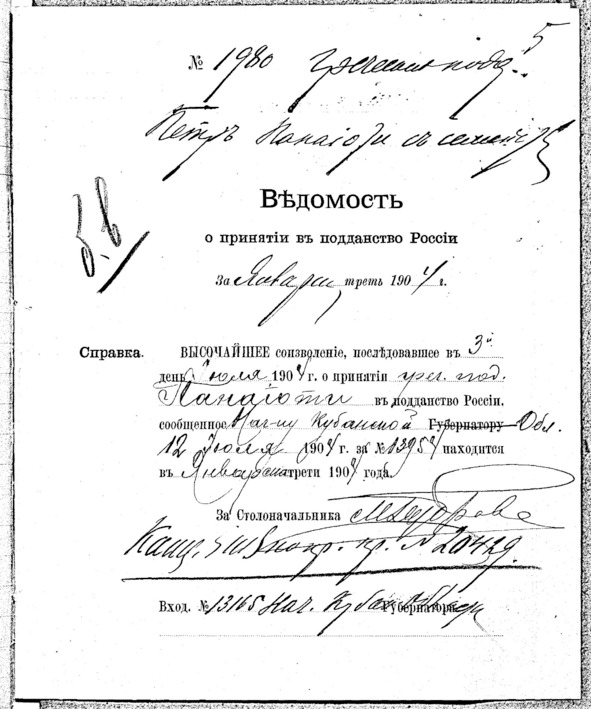 5
№ 1980 греческ. подд.
Петръ Панаіоти съ семей
Вѣдомость
о принятіи въ подданство Россіи
За Январск. треть 1904 г.
Справка. ВЫСОЧАЙШЕЕ соизволеніе, послѣдовавшее въ 3й
день Іюля 1904 г. о принятіи греч. под.
Панаіоти въ подданство Россіи.
сообщенное Нач-ку Кубанской Губернатору Обл.
12 Іюля 1904 г. за № 13954 находится
въ Январской трети 1904 года.
За Столоначальника
№ 20429.
Вход. № 13165 Нач. Кубан. Губернатора